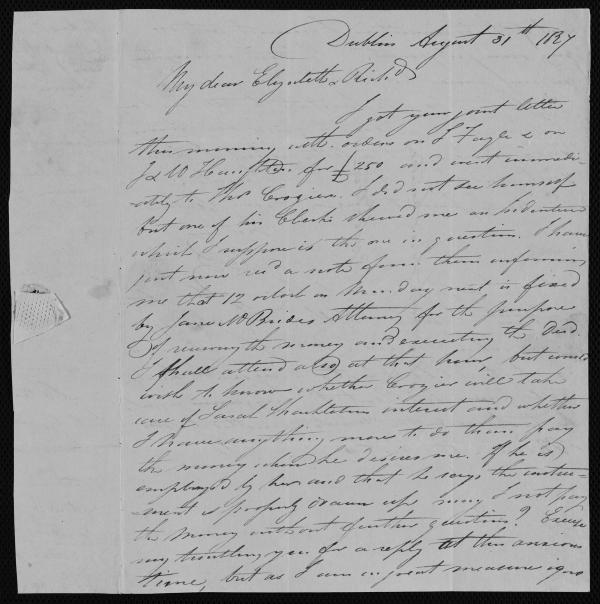 Dublin August 31th 1827
My dear Elizabeth & Richd
I got your joint letter
this morning with orders on J Fayle & on
J & W Haughton for £250 and went immedi-
ately to Thos Crozier. I did not see himself
but one of his Clerks shewed me an Indenture
which I suppose is the one in question. I have
just now recd a note from them informing
me that 12 oclock on Monday next is fixed
by Jane McBrides Attorney for the purpose
of receiving the money and executing the Deed.
I shall attend also at that hour, but would
wish to know whether Crozier will take
care of Sarah Shackletons interest and whether
I have anything more to do than pay
the money when he desires me. If he is
employed by her and that he says the instru-
ment is properly drawn up may I not pay
the money without further question? Excuse
my troubling you for a reply at this anxious
time, but as I am in great measure igno